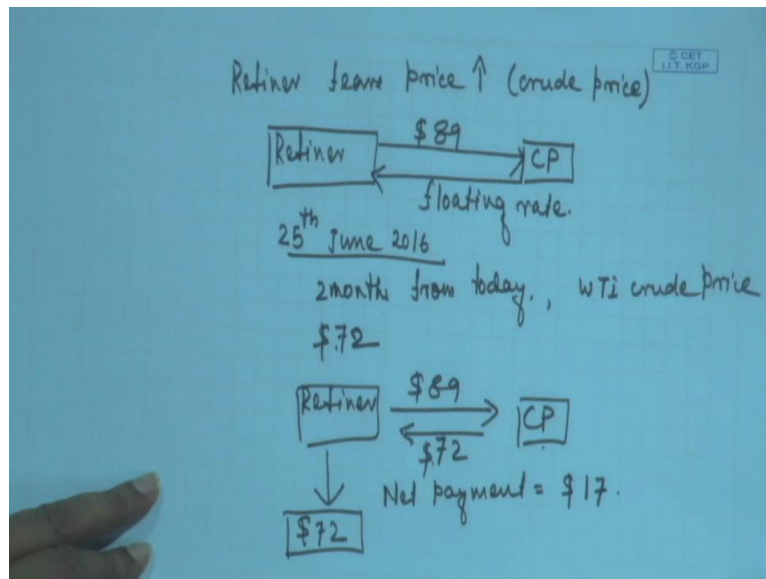 © CET
I.I.T. KGP
Refiner fears price ↑ (crude price)
$89
Refiner
CP
floating rate.
25th June 2016
2 months from today., WTI crude price
$72
Refiner
$89
CP
$72
Net payment = $17.
$72